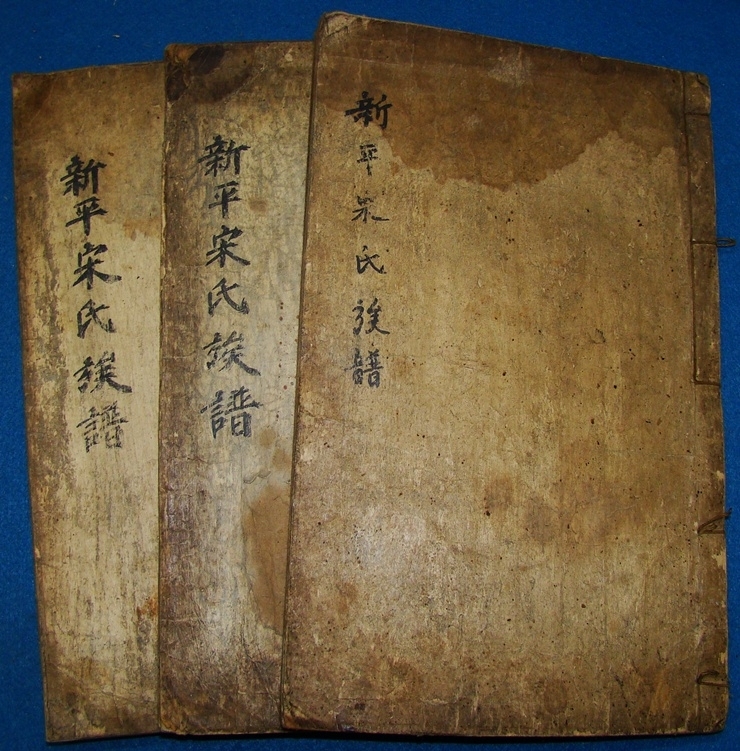 新平宋氏族譜
新平宋氏族譜
新平宋氏族譜